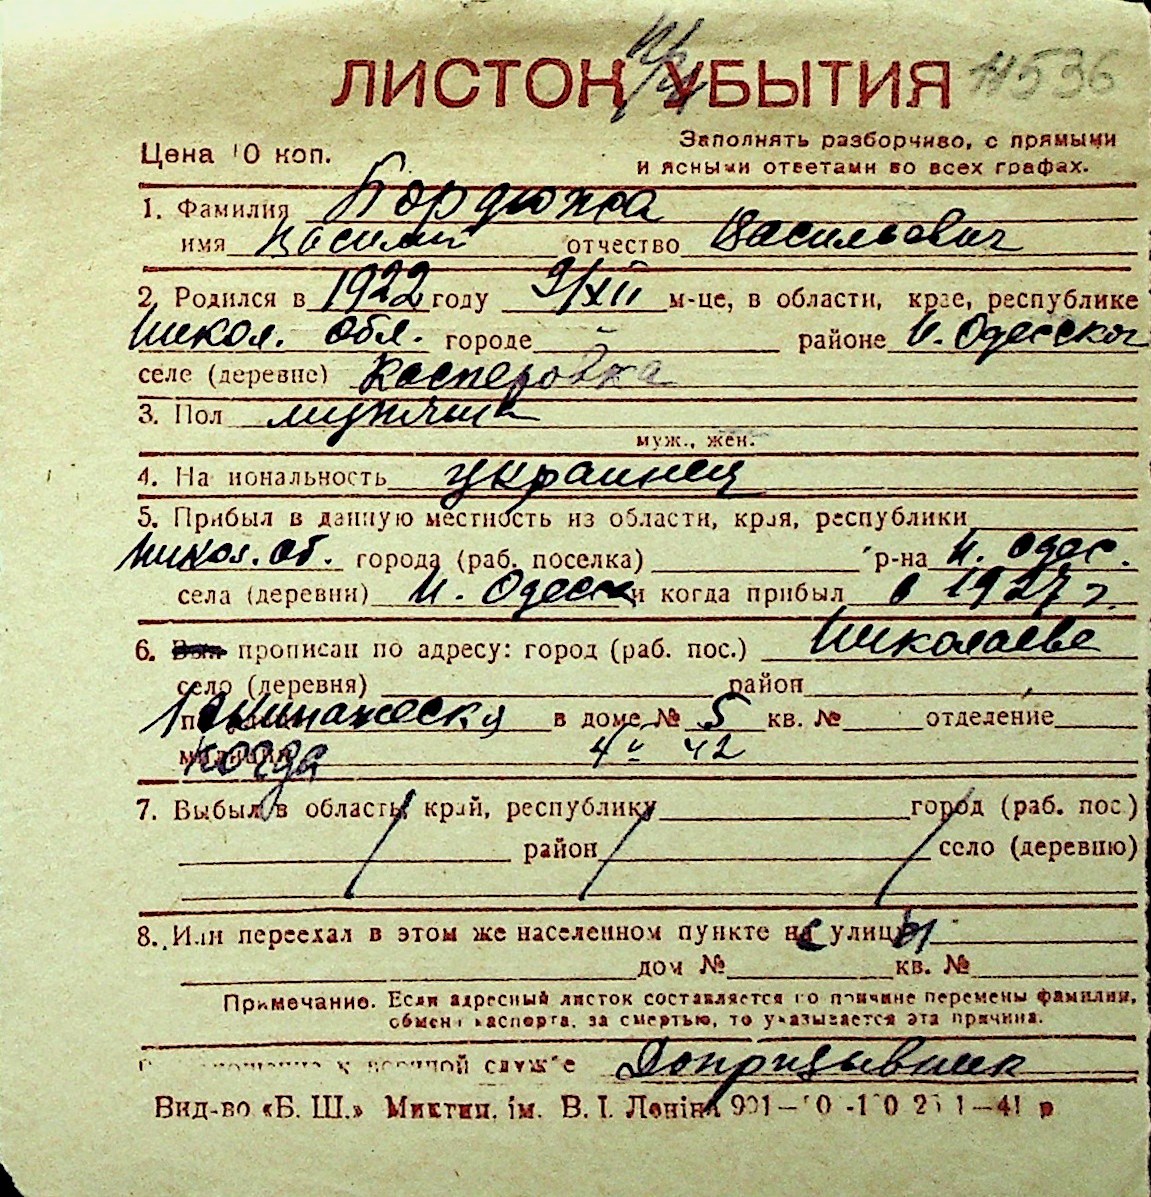 ЛИСТОК УБЫТИЯ 11536
Цена 10 коп.
Заполнять разборчиво, с прямыми
и ясными ответами во всех графах.
1. Фамилия Бордюжа
имя Василий отчество Васильевич
2. Родился в 1922 году 9/XII м-це, в области, крае, республике
Никол. обл. городе районе Н. Одесског
селе (деревне) Касперовка
3. Пол мужчина
муж., жен.
4. Национальность украинец
5. Прибыл в данную местность из области, края, республики
Никол. об. города (раб. поселка) р-на Н. Одес.
села (деревни) Н. Одесск и когда прибыл в 1927 г.
6. прописан по адресу: город (раб. пос.) Николаеве
село (деревня) район
в доме № 5 кв. № отделение
когда 42
7. Выбыл в область, край, республику город (раб. пос.)
район село (деревню)
8. Или переехал в этом же населенном пункте с улицы
дом № кв. №
Примечание. Если адресный листок составляется по причине перемены фамилии,
обмена паспорта, за смертью, то указывается эта причина.
к военной службе Допризывник
Вид-во «Б. Ш.» Миктип. ім. В. І. Леніна